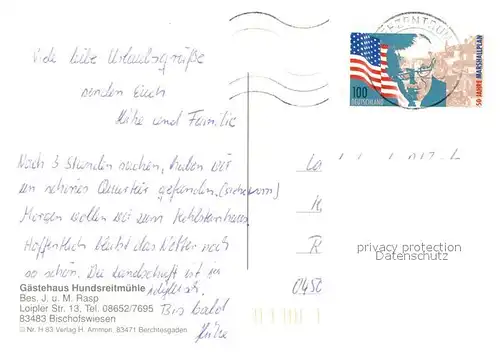 Viele liebe Urlaubsgrüße
senden Euch
und Familie
Nach 3 Stunden suchen, haben wir
ein schönes Quartier gefunden.
Morgen wollen wir zum Kehlsteinhaus
Hoffentlich bleibt das Wetter noch
so schön. Die Landschaft ist
idyllisch.
Bis bald
Gästehaus Hundsreitmühle
Bes. J. u. M. Rasp
Loipler Str. 13, Tel. 08652/7695
83483 Bischofswiesen
© Nr. H 83 Verlag H. Ammon, 83471 Berchtesgaden
100
DEUTSCHLAND
50 JAHRE MARSHALLPLAN
privacy protection
Datenschutz